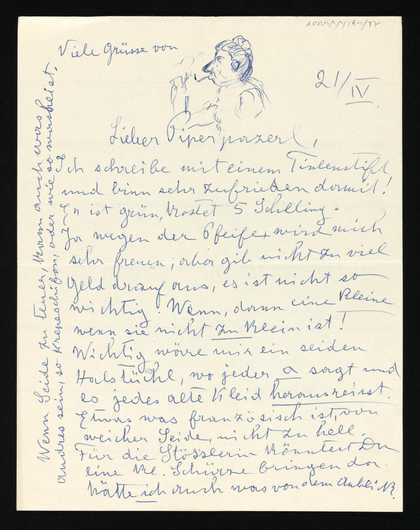 Viele Grüsse von
21/IV.
Lieber Piperpozerl,
Ich schreibe mit einem Tintenstift
und binn sehr zufrieden damit!
Er ist grün, kostet 5 Schilling.
Ja wegen der Pfeife, wird mich
sehr freuen, aber gib nicht zu viel
Geld drauf aus, es ist nicht so
wichtig. Wenn, dann eine kleine
wenn sie nicht zu klein ist!
Wichtig wäre mir ein seiden
Halstüchl, wo jeder a sagt und
es jedes alte Kleid herausreisst.
Etwas was französisch ist, von
weicher Seide, nicht zu hell.
Für die Stösslerin könntest Du
eine kl. Schürze bringen da
hätte ich auch was von dem Anblick.
Wenn Seide zu teuer, kann auch was
andres sein, so Krepschifon, oder wie so was heisst.